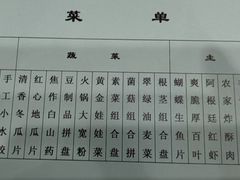 菜单
蔬菜
主
手工小水饺
清香冬瓜片
红心地瓜片
焦作白山药
豆制品拼盘
火锅大宽粉
黄金娃娃菜
素菜组合盘
菌菇组合盘
翠绿油麦菜
根茎组合盘
蝴蝶生鱼片
爽脆厚百叶
阿根廷红虾
农家炸酥肉